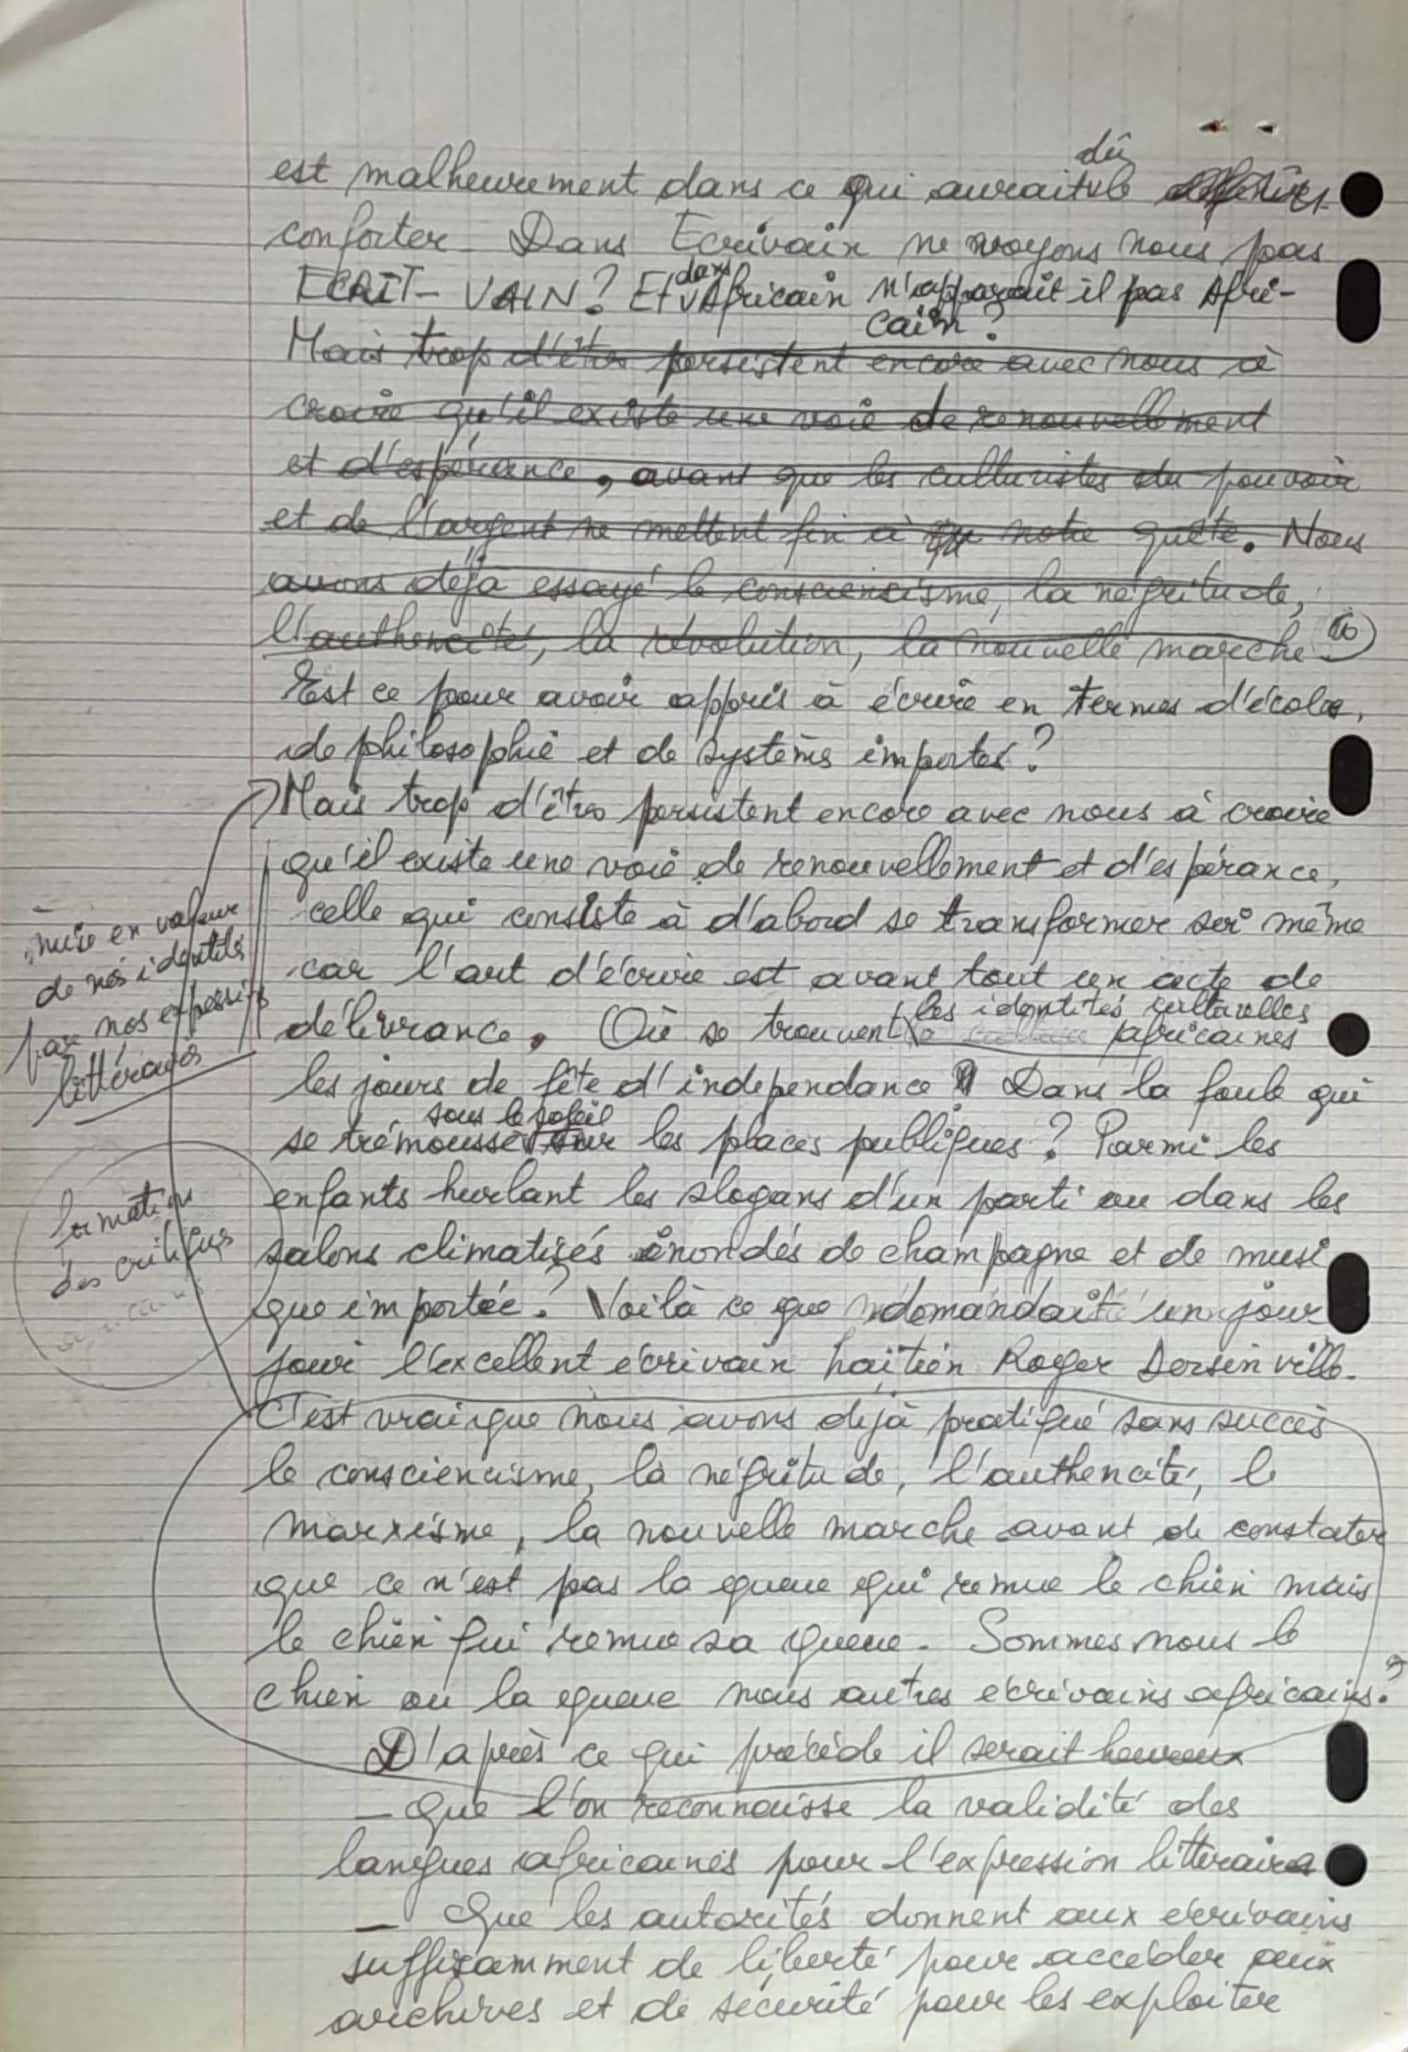 est malheurement dans ce qui aurait dû le
conforter. Dans Ecrivain ne voyons nous pas
ECRIT-VAIN? Et dans Africain n'apparait il pas Afri-
cain?
Mais trop d'êtres persistent encore avec nous à
croire qu'il existe une voie de renouvellement
et d'espérance, avant que les culturistes du pouvoir
et de l'argent ne mettent fin à notre quête. Nous
avons déjà essayé le consciencisme, la négritude,
l'authencité, la révolution, la nouvelle marche.
Est ce pour avoir appris à écrire en termes d'école,
de philosophie et de systèmes importés?
Mais trop d'êtres persistent encore avec nous à croire
qu'il existe une voie de renouvellement et d'espérance,
celle qui consiste à d'abord se transformer soi même
car l'art d'écrire est avant tout un acte de
délivrance. Où se trouvent les identités culturelles
africaines
les jours de fête d'independance? Dans la foule qui
se trémousse sous le soleil sur les places publiques? Parmi les
enfants hurlant les slogans d'un parti ou dans les
salons climatisés inondés de champagne et de musi
que importée? Voilà ce que demandait un jour
jour l'excellent écrivain haïtien Roger Dorsinville.
C'est vrai que nous avons déjà pratiqué sans succès
le consciencisme, la négritude, l'authencité, le
marxisme, la nouvelle marche avant de constater
que ce n'est pas la queue qui remue le chien mais
le chien qui remue sa queue. Sommes nous le
chien ou la queue nous autres écrivains africains?
D'après ce qui précède il serait heureux
- Que l'on reconnaisse la validité des
langues africaines pour l'expression littéraire
- Que les autorités donnent aux écrivains
suffisamment de liberté pour accéder aux
archives et de sécurité pour les exploiter
mise en valeur
de nos identités
par nos expressions
littéraires
formation
des critiques